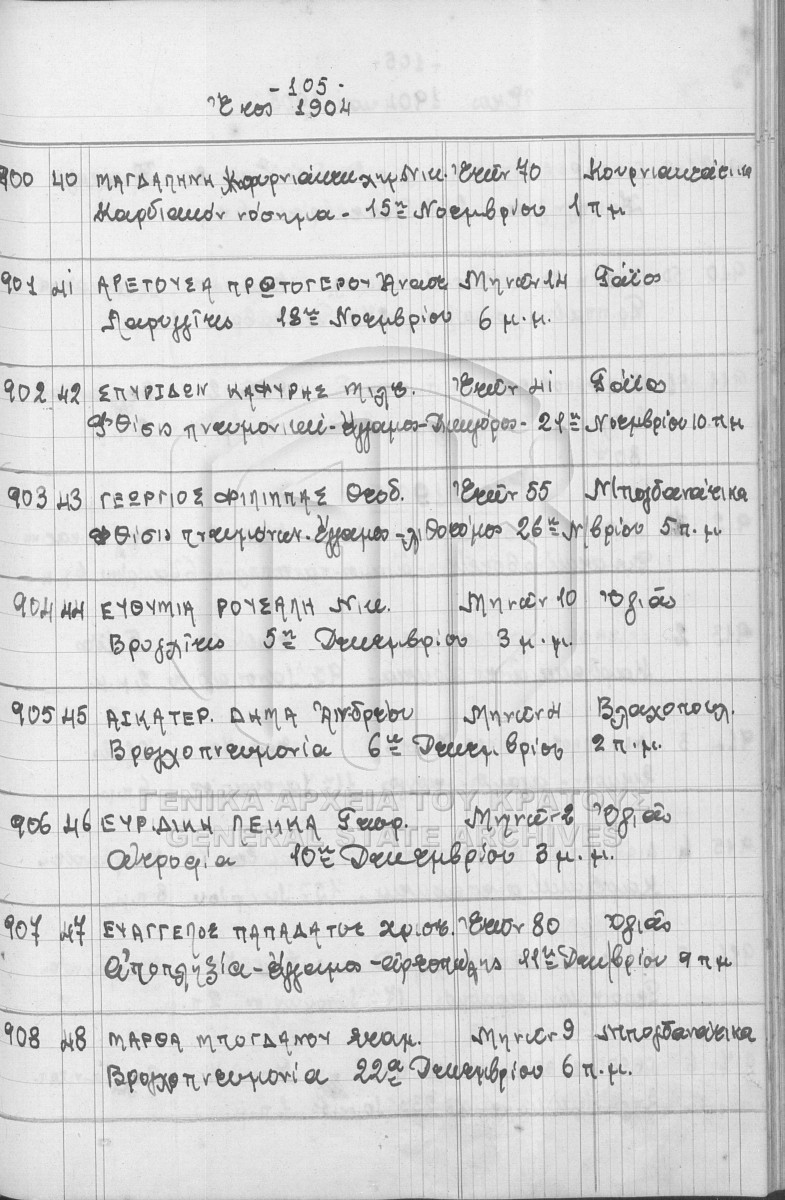 - 105 -
Ἔτος 1904
900 40 ΜΑΓΔΑΛΗΝΗ Νικ. Ἐτῶν 70 Κουρνιακτάτικα
Καρδιακὸν νόσημα - 15ῃ Νοεμβρίου 1 π μ
901 41 ΑΡΕΤΟΥΣΑ ΠΡΩΤΟΓΕΡΟΥ Ἀναστ Μηνῶν 14 Γάϊος
Λαρυγγῖτις 18ῃ Νοεμβρίου 6 μ.μ.
902 42 ΣΠΥΡΙΔΩΝ ΚΑΦΥΡΗΣ Μιλτ. Ἐτῶν 41 Γάϊος
Φθίσις πνευμονική - Ἔγγαμος - Δικηγόρος - 21ῃ Νοεμβρίου 10 π μ
903 43 ΓΕΩΡΓΙΟΣ ΦΙΛΙΠΠΑΣ Θεοδ. Ἐτῶν 55 Μπογδανάτικα
Φθίσις πνευμόνων - Ἔγγαμος - λιθοτόμος 26ῃ Ν/βρίου 5 π. μ
904 44 ΕΥΘΥΜΙΑ ΡΟΥΣΑΛΗ Νικ. Μηνῶν 10 Ὀζιᾶς
5ῃ Δεκεμβρίου 3 μ.μ.
905 45 ΑΙΚΑΤΕΡ. ΔΗΜΑ Ἀνδρέου Μηνῶν 4 Βλαχοπουλ.
Βρογχοπνευμονία 6ῃ Δεκεμβρίου 2 π.μ.
906 46 ΕΥΡΔΙΚΗ ΛΕΚΚΑ Γεωρ. Μηνῶν 2 Ὀζιᾶς
Ἀτροφία 10ῃ Δεκεμβρίου 3 μ.μ.
907 47 ΕΥΑΓΓΕΛΟΣ ΠΑΠΑΔΑΤΟΣ Χριστ. Ἐτῶν 80 Ὀζιᾶς
Ἀποπληξία - Ἔγγαμος - 11ῃ Δεκ/βρίου 9 π μ
908 48 ΜΑΡΘΑ ΜΠΟΓΔΑΝΟΥ Μηνῶν 9 Μπογδανάτικα
Βρογχοπνευμονία 22ᾳ Δεκεμβρίου 6 π.μ.
ΓΕΝΙΚΑ ΑΡΧΕΙΑ ΤΟΥ ΚΡΑΤΟΥΣ
GENERAL STATE ARCHIVES